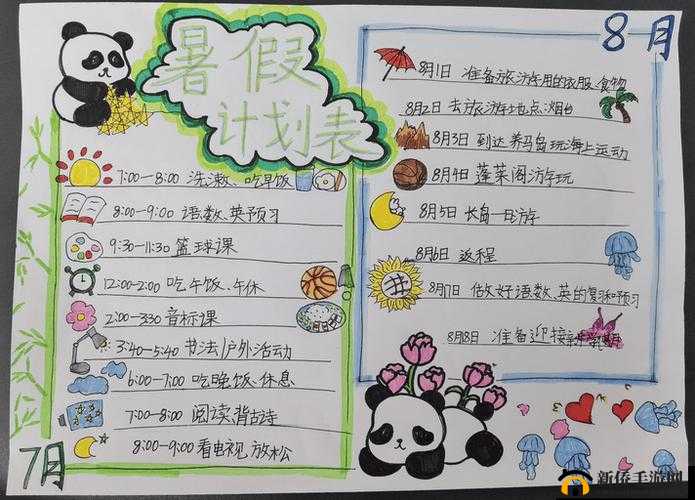 暑假
计划表
7:00-8:00 洗漱、吃早饭
8:00-9:00 语数、英预习
9:30-11:30 篮球课
12:00-2:00 吃午饭、午休
2:00-3:30 音标课
3:40-5:40 书法/户外活动
6:00-7:00 吃晚饭、休息
7:00-8:00 阅读、背古诗
8:00-9:00 看电视、放松
7月
8月
8月1日 准备旅游用的衣服、食物
8月2日 去旅游地点:烟台
8月3日 到达养马岛玩海上运动
8月4日 蓬莱阁游玩
8月5日 长岛一日游
8月6日 返程
8月7日 做好语数、英的复习和预习
8月8日 准备迎接新学期
新侨手游网